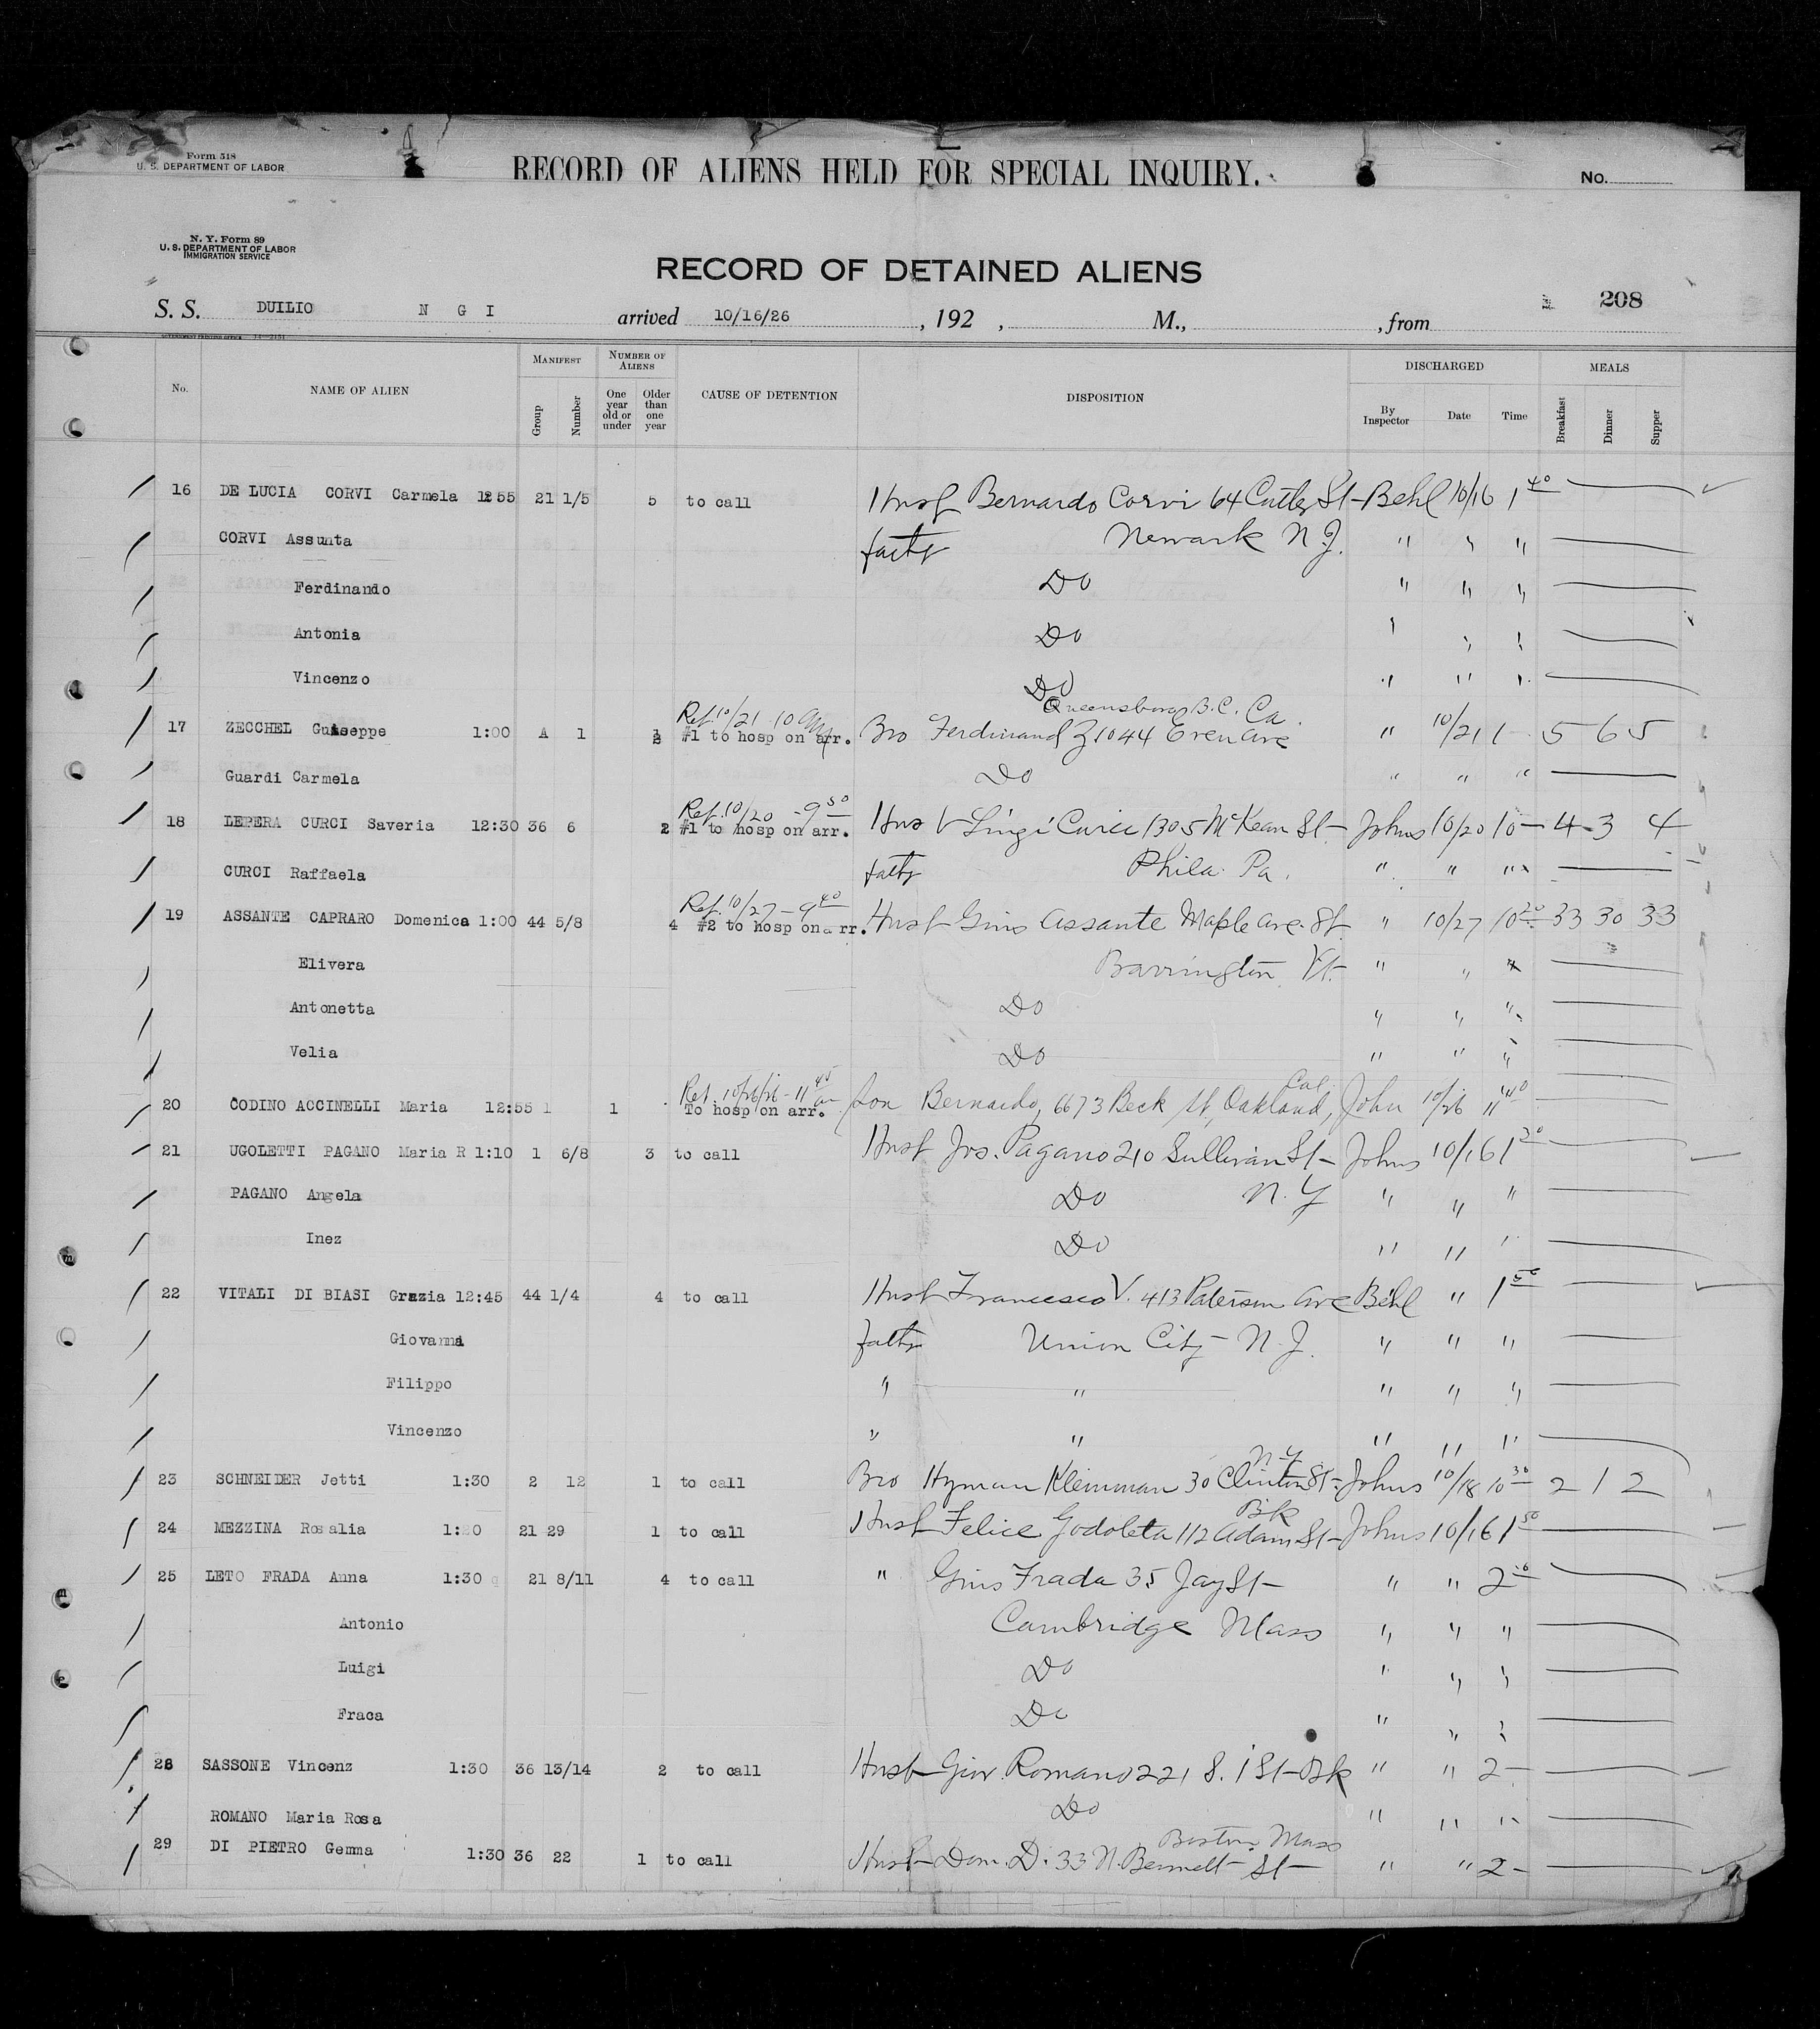 Form 518
U. S. DEPARTMENT OF LABOR
RECORD OF ALIENS HELD FOR SPECIAL INQUIRY.
No.
N. Y. Form 89
U. S. DEPARTMENT OF LABOR
IMMIGRATION SERVICE
RECORD OF DETAINED ALIENS
208
S. S. DUILIO N G I arrived 10/16/26 , 192 , M., , from
No. NAME OF ALIEN MANIFEST Group Number NUMBER OF ALIENS One year old or under Older than one year CAUSE OF DETENTION DISPOSITION DISCHARGED By Inspector Date Time MEALS Breakfast Dinner Supper
16 DE LUCIA CORVI Carmela 1255 21 1/5 5 to call Husb Bernardo Corvi 64 Cutler St - Behl 10/16 1 40
CORVI Assunta Newark N.J. " " "
Ferdinando Do " " "
Antonia Do " " "
Vincenzo Do " " "
Ref. 10/21 10 B.C. Ca.
17 ZECCHEL Guiseppe 1:00 A 1 #1 to hosp on arr. Bro Ferdinand Z 1044 Ave " 10/21 1 - 5 6 5
Guardi Carmela Do " " "
Ref. 10/20 - 9 50
18 LEPERA CURCI Saveria 12:30 36 6 2 #1 to hosp on arr. Curci 1305 McKean St - Johns 10/20 10 - 4 - 3 4
CURCI Raffaela Phila. Pa. " " "
Ref. 10/27 - 9 40
19 ASSANTE CAPRARO Domenica 1:00 44 5/8 4 #2 to hosp on arr. Husb Gius Assante Maple Ave. St " 10/27 10 20 33 30 33
Elivera Barrington " "
Antonetta Do " " "
Velia Do " " "
Ref 10/26/26 - 11 45 Cal.
20 CODINO ACCINELLI Maria 12:55 1 1 To hosp on arr. Son Bernardo, 6673 Beck St, Oakland, John 10/26 11 40
21 UGOLETTI PAGANO Maria R 1:10 1 6/8 3 to call Husb Jos. Pagano 210 Sullivan St - Johns 10/16 1 20
PAGANO Angela Do N. Y " " "
Inez Do " " "
22 VITALI DI BIASI Grazia 12:45 44 1/4 4 to call Husb Francesco V. 413 Paterson Ave Behl " 1 50
Giovanni Union City - N. J. " " "
Filippo " " " " "
Vincenzo " " " " "
N-Y
23 SCHNEIDER Jetti 1:30 2 12 1 to call Bro Hyman Kleinman 30 Clinton St - Johns 10/18 10 30 2 1 2
Bk
24 MEZZINA Rosalia 21 29 1 to call Husb Felice Godoleta 112 Adam St - Johns 10/16 1 50
25 LETO FRADA Anna 1:30 21 8/11 4 to call " Gius Frada 35 Jay St - " " 2
Antonio Cambridge Mass " " "
Luigi Do " " "
Fraca Do " " "
28 SASSONE Vincenz 1:30 36 13/14 2 to call Husb Giov. Romano 221 S. 1 St - Bk " " 2 -
ROMANO Maria Rosa Do " " "
Boston Mass
29 DI PIETRO Gemma 1:30 36 22 1 to call Husb - Dom. D. 33 N. Bennett St - " " 2 -